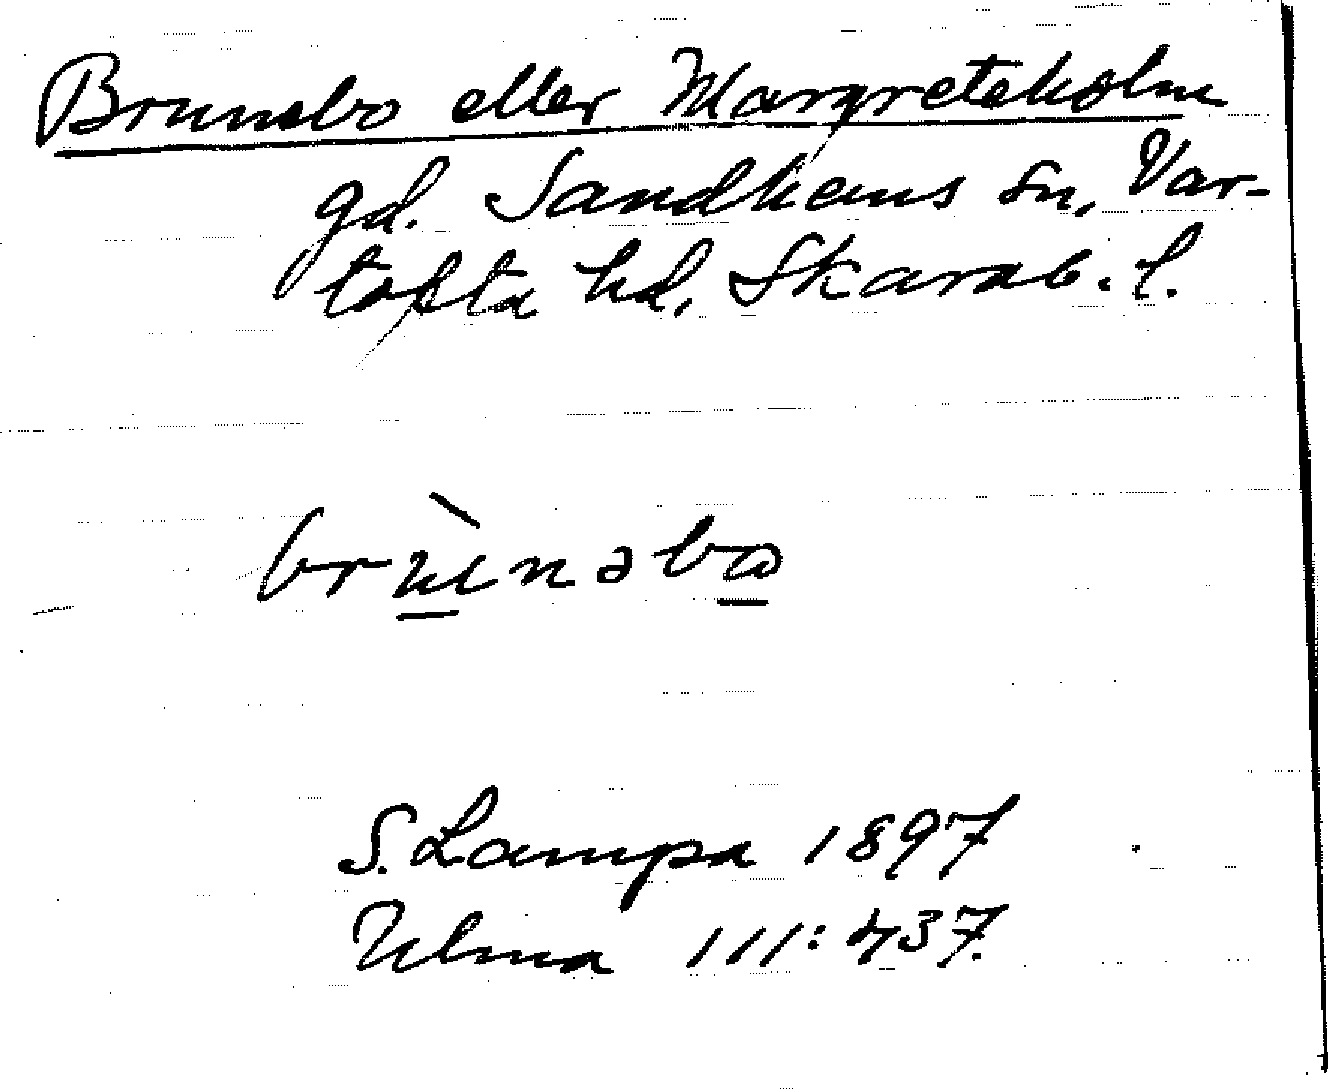 Brunsbo eller Margreteholm
gd. Sandhems sn, Var-
tofta hd, Skarab. l.
brùnəbω
S. Lampa 1897
Ulma 111:437.